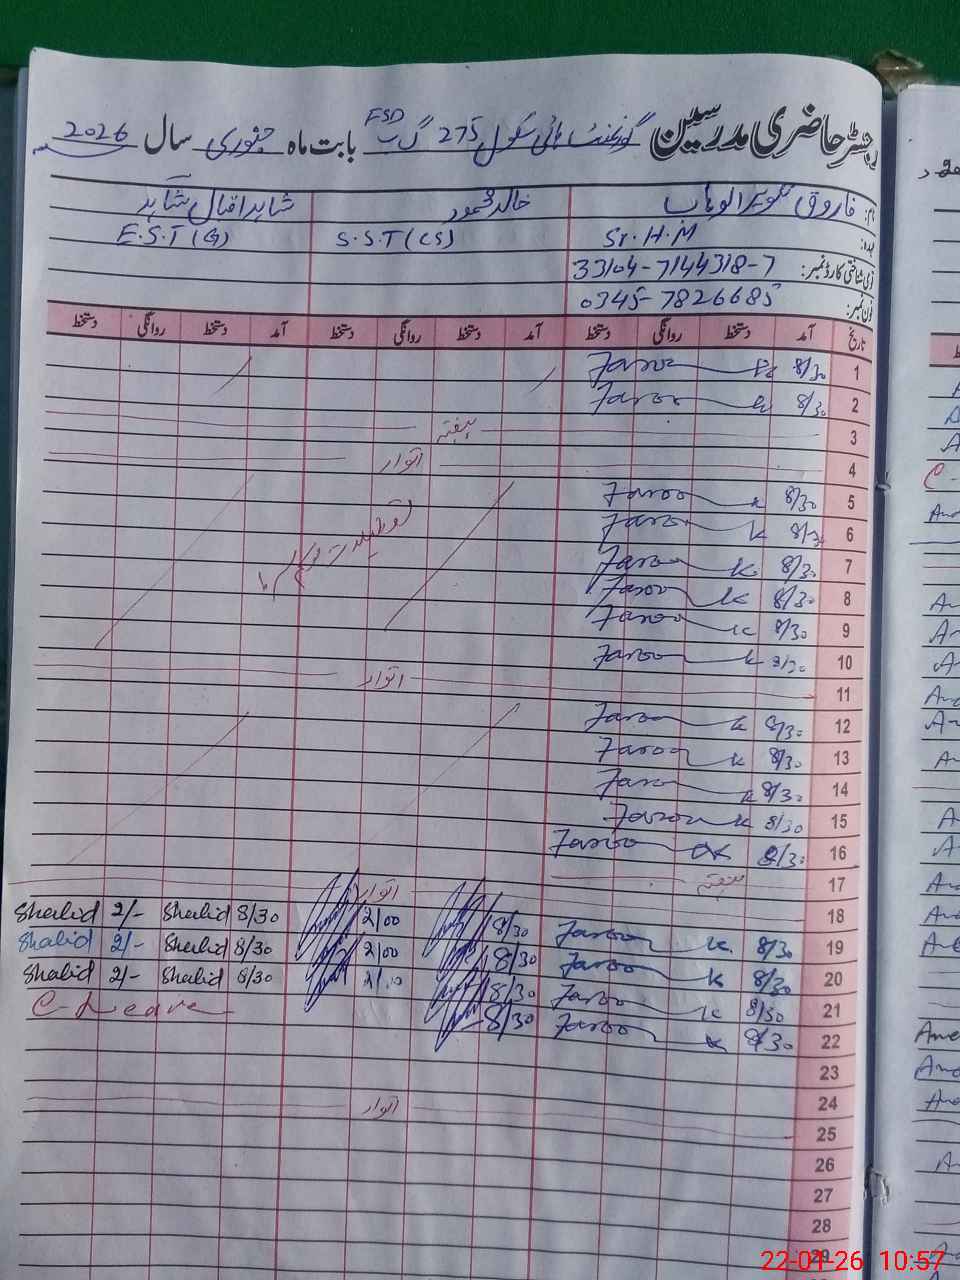 رجسٹر حاضری مدرسین گورنمنٹ ہائی سکول 275 گ ب FSD بابت ماہ جنوری سال 2026
نام: فاروق الوہاب خالد محمود شاہد اقبال شاہد
عہدہ: Sr. H. M S.S.T (CS) E.S.T (G)
قومی شناختی کارڈ نمبر: 33104-7144318-7
فون نمبر: 0345-7826685
تاریخ آمد دستخط روانگی دستخط آمد دستخط روانگی دستخط آمد دستخط روانگی دستخط
1 8/30 Farooq
2 8/30 Farooq
3 ہفتہ
4 اتوار
5 8/30 Farooq
6 8/30 Farooq
7 8/30 Farooq
8 8/30 Farooq
9 8/30 Farooq
10 8/30 Farooq
11 اتوار
12 8/30 Farooq
13 8/30 Farooq
14 8/30 Farooq
15 8/30 Farooq
16 8/30 Farooq
17 ہفتہ
18 اتوار
19 8/30 Farooq 8/30 2/00 8/30 Shahid 2/- Shahid
20 8/30 Farooq 8/30 2/00 8/30 Shahid 2/- Shahid
21 8/30 Farooq 8/30 2/00 8/30 Shahid 2/- Shahid
22 8/30 Farooq 8/30 C-Leave
23
24
25 اتوار
26
27
28
29
22-01-26 10:57